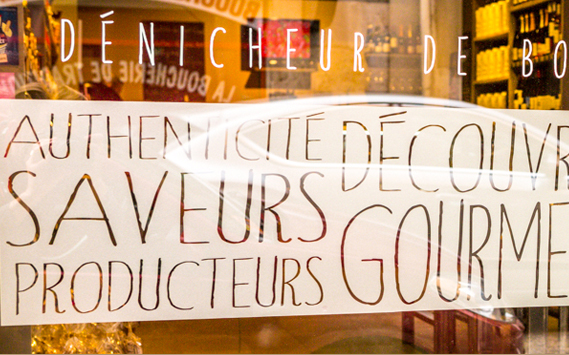 DÉNICHEUR DE BO
AUTHENTICITÉ DÉCOUVR
SAVEURS GOURME
PRODUCTEURS
LA BOUCHERIE DE